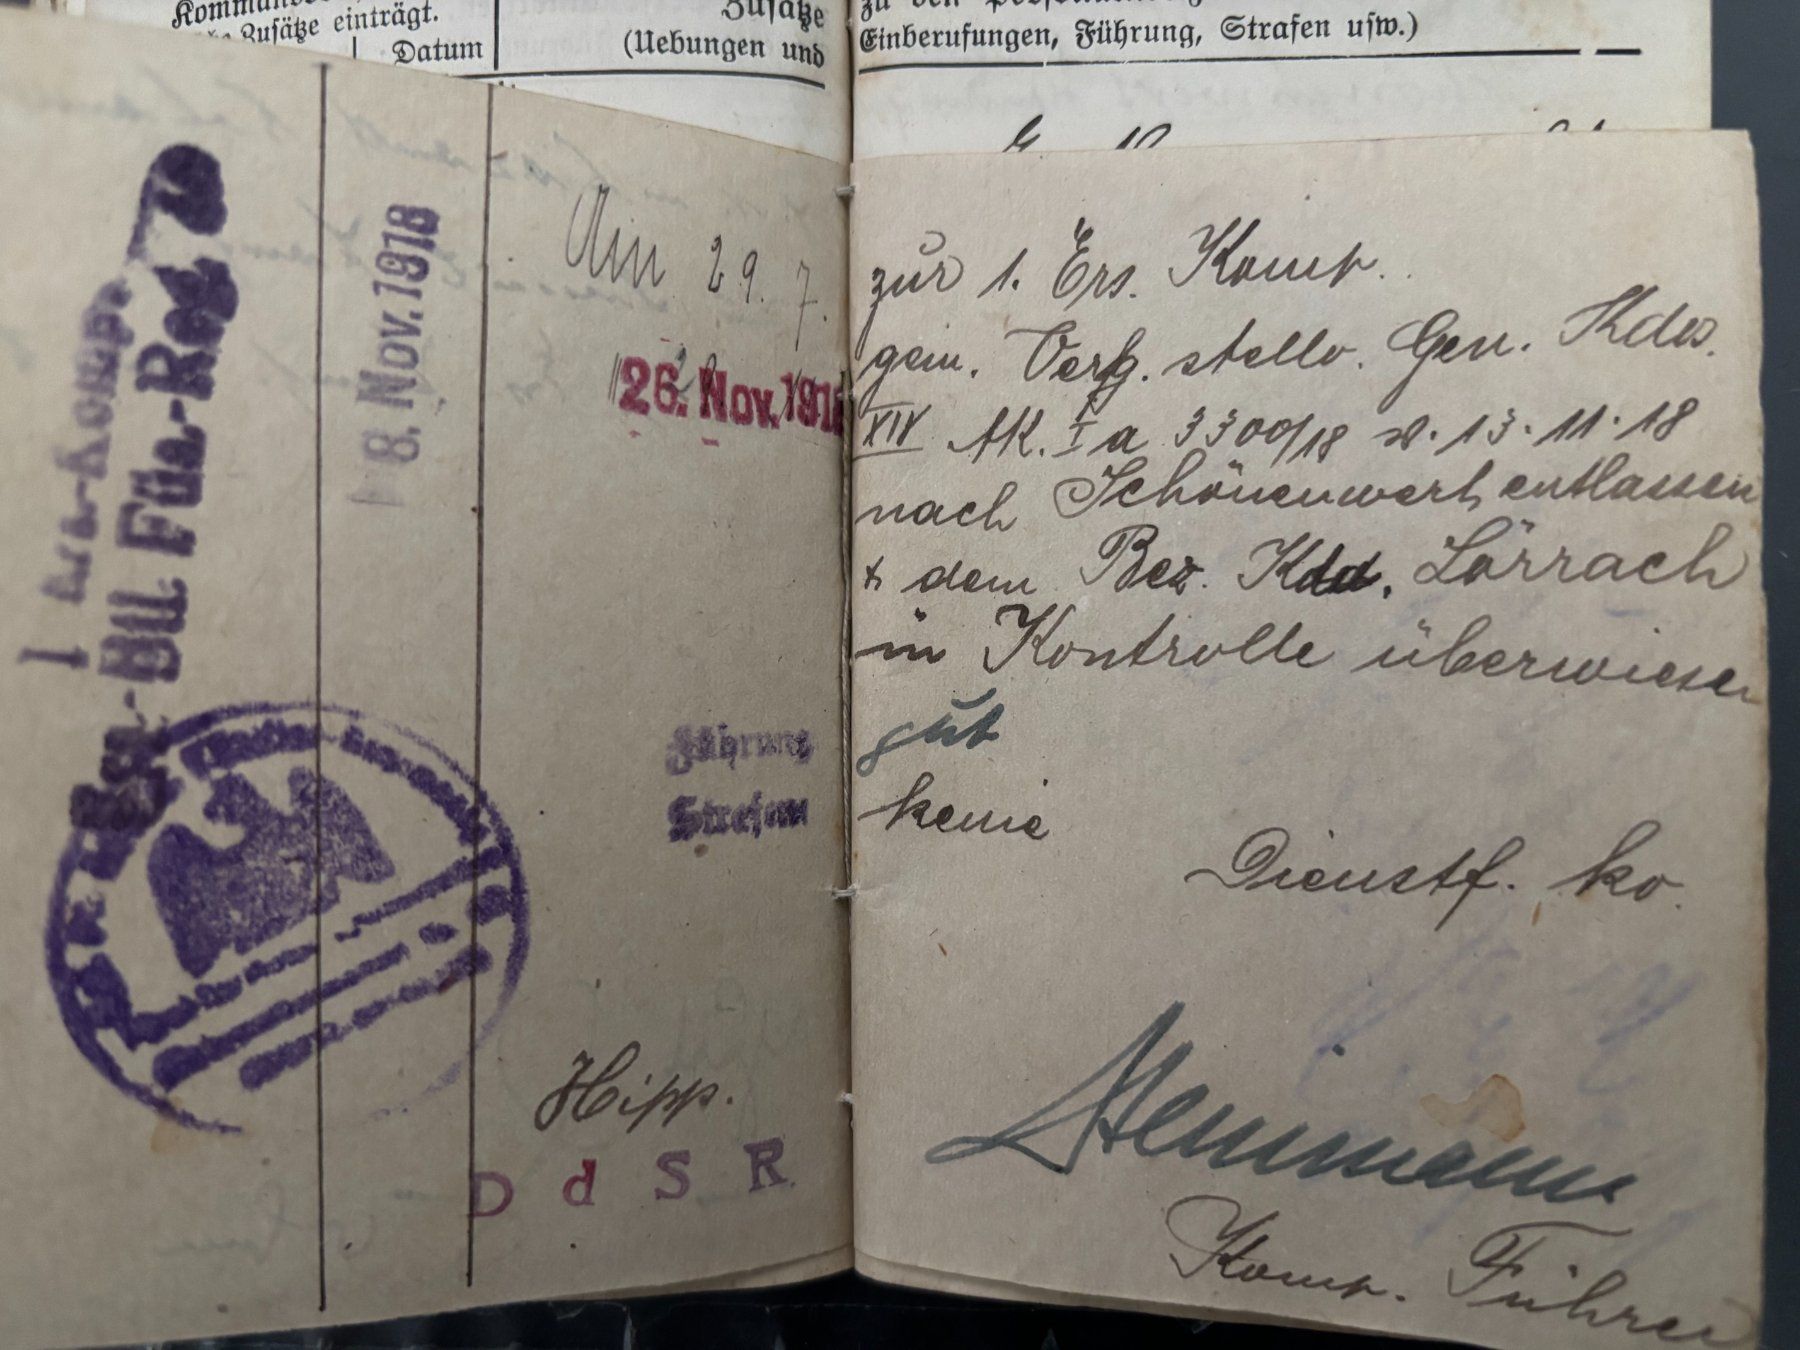 Zusätze einträgt.
Datum
Zusätze
(Uebungen und
Einberufungen, Führung, Strafen usw.)
I Ers.-Komp.
Ers.-Btl. Füs.-Reg. 40
18. Nov. 1918
Am 29. 7.
26. Nov. 191
Führung
Strafen
Hipp.
D d S R.
zur 1. Ers. Komp.
gem. Verfg. stellv. Gen. Kdos.
XIV AK. I a 3300/18 v. 13. 11. 18
nach Schönenwert entlassen
& dem Bez. Kdo. Lörrach
in Kontrolle überwiesen
gut
keine
Dienstf. ko.
Komp. Führer